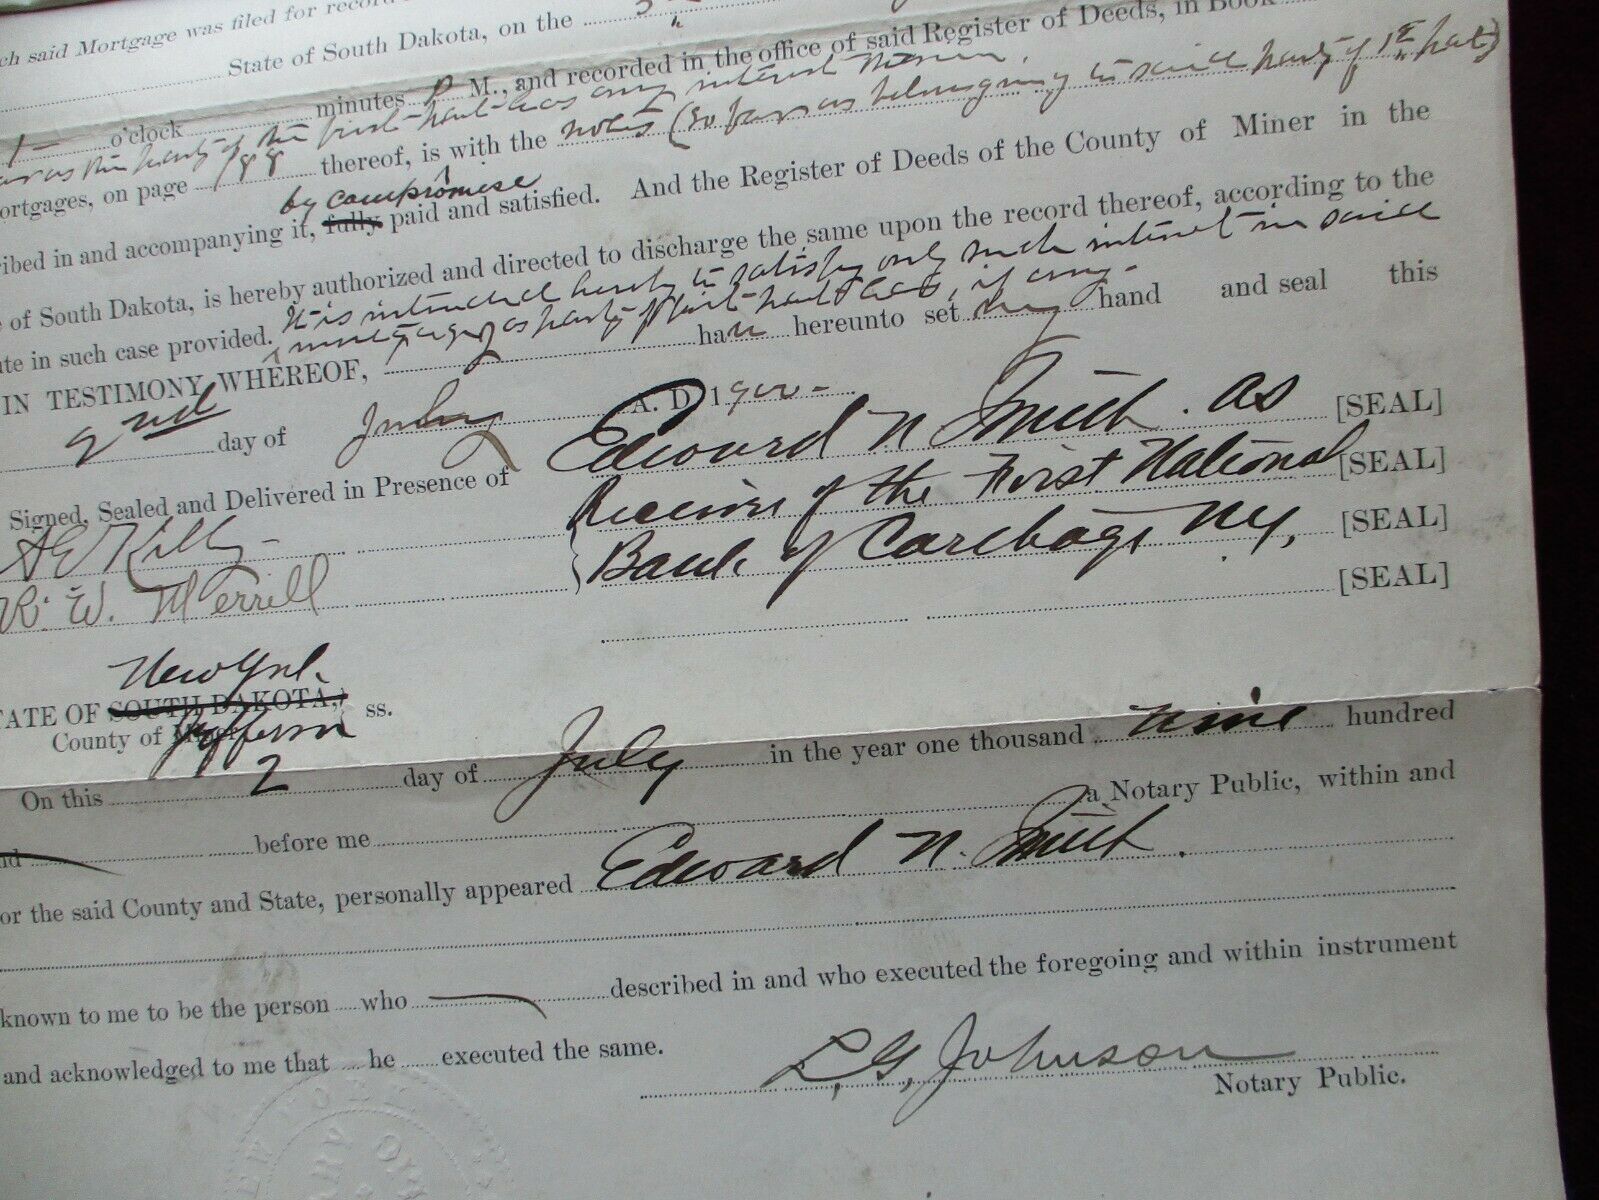 ch said Mortgage was filed for record
State of South Dakota, on the 3
1 o'clock minutes P M., and recorded in the office of said Register of Deeds, in Book
as the party of the first part has any interest therein.
ortgages, on page 188 thereof, is with the notes (so far as belonging to said party of 1st part)
by compromise
ribed in and accompanying it, fully paid and satisfied. And the Register of Deeds of the County of Miner in the
of South Dakota, is hereby authorized and directed to discharge the same upon the record thereof, according to the
It is intended hereby to satisfy only such interest in said
te in such case provided. mortgage as party of first part has, if any-
IN TESTIMONY WHEREOF, have hereunto set my hand and seal this
2nd day of July A. D. 1900-
Signed, Sealed and Delivered in Presence of Edward N Smith. as [SEAL]
Receiver of the First National [SEAL]
A E Kilby- Bank of Carthage NY, [SEAL]
R. W. Merrill [SEAL]
New York.
TATE OF SOUTH DAKOTA, ss.
County of Jefferson
On this 2 day of July in the year one thousand nine hundred
nd before me a Notary Public, within and
or the said County and State, personally appeared Edward N. Smith.
known to me to be the person who described in and who executed the foregoing and within instrument
and acknowledged to me that he executed the same.
L, G, Johnson
Notary Public.